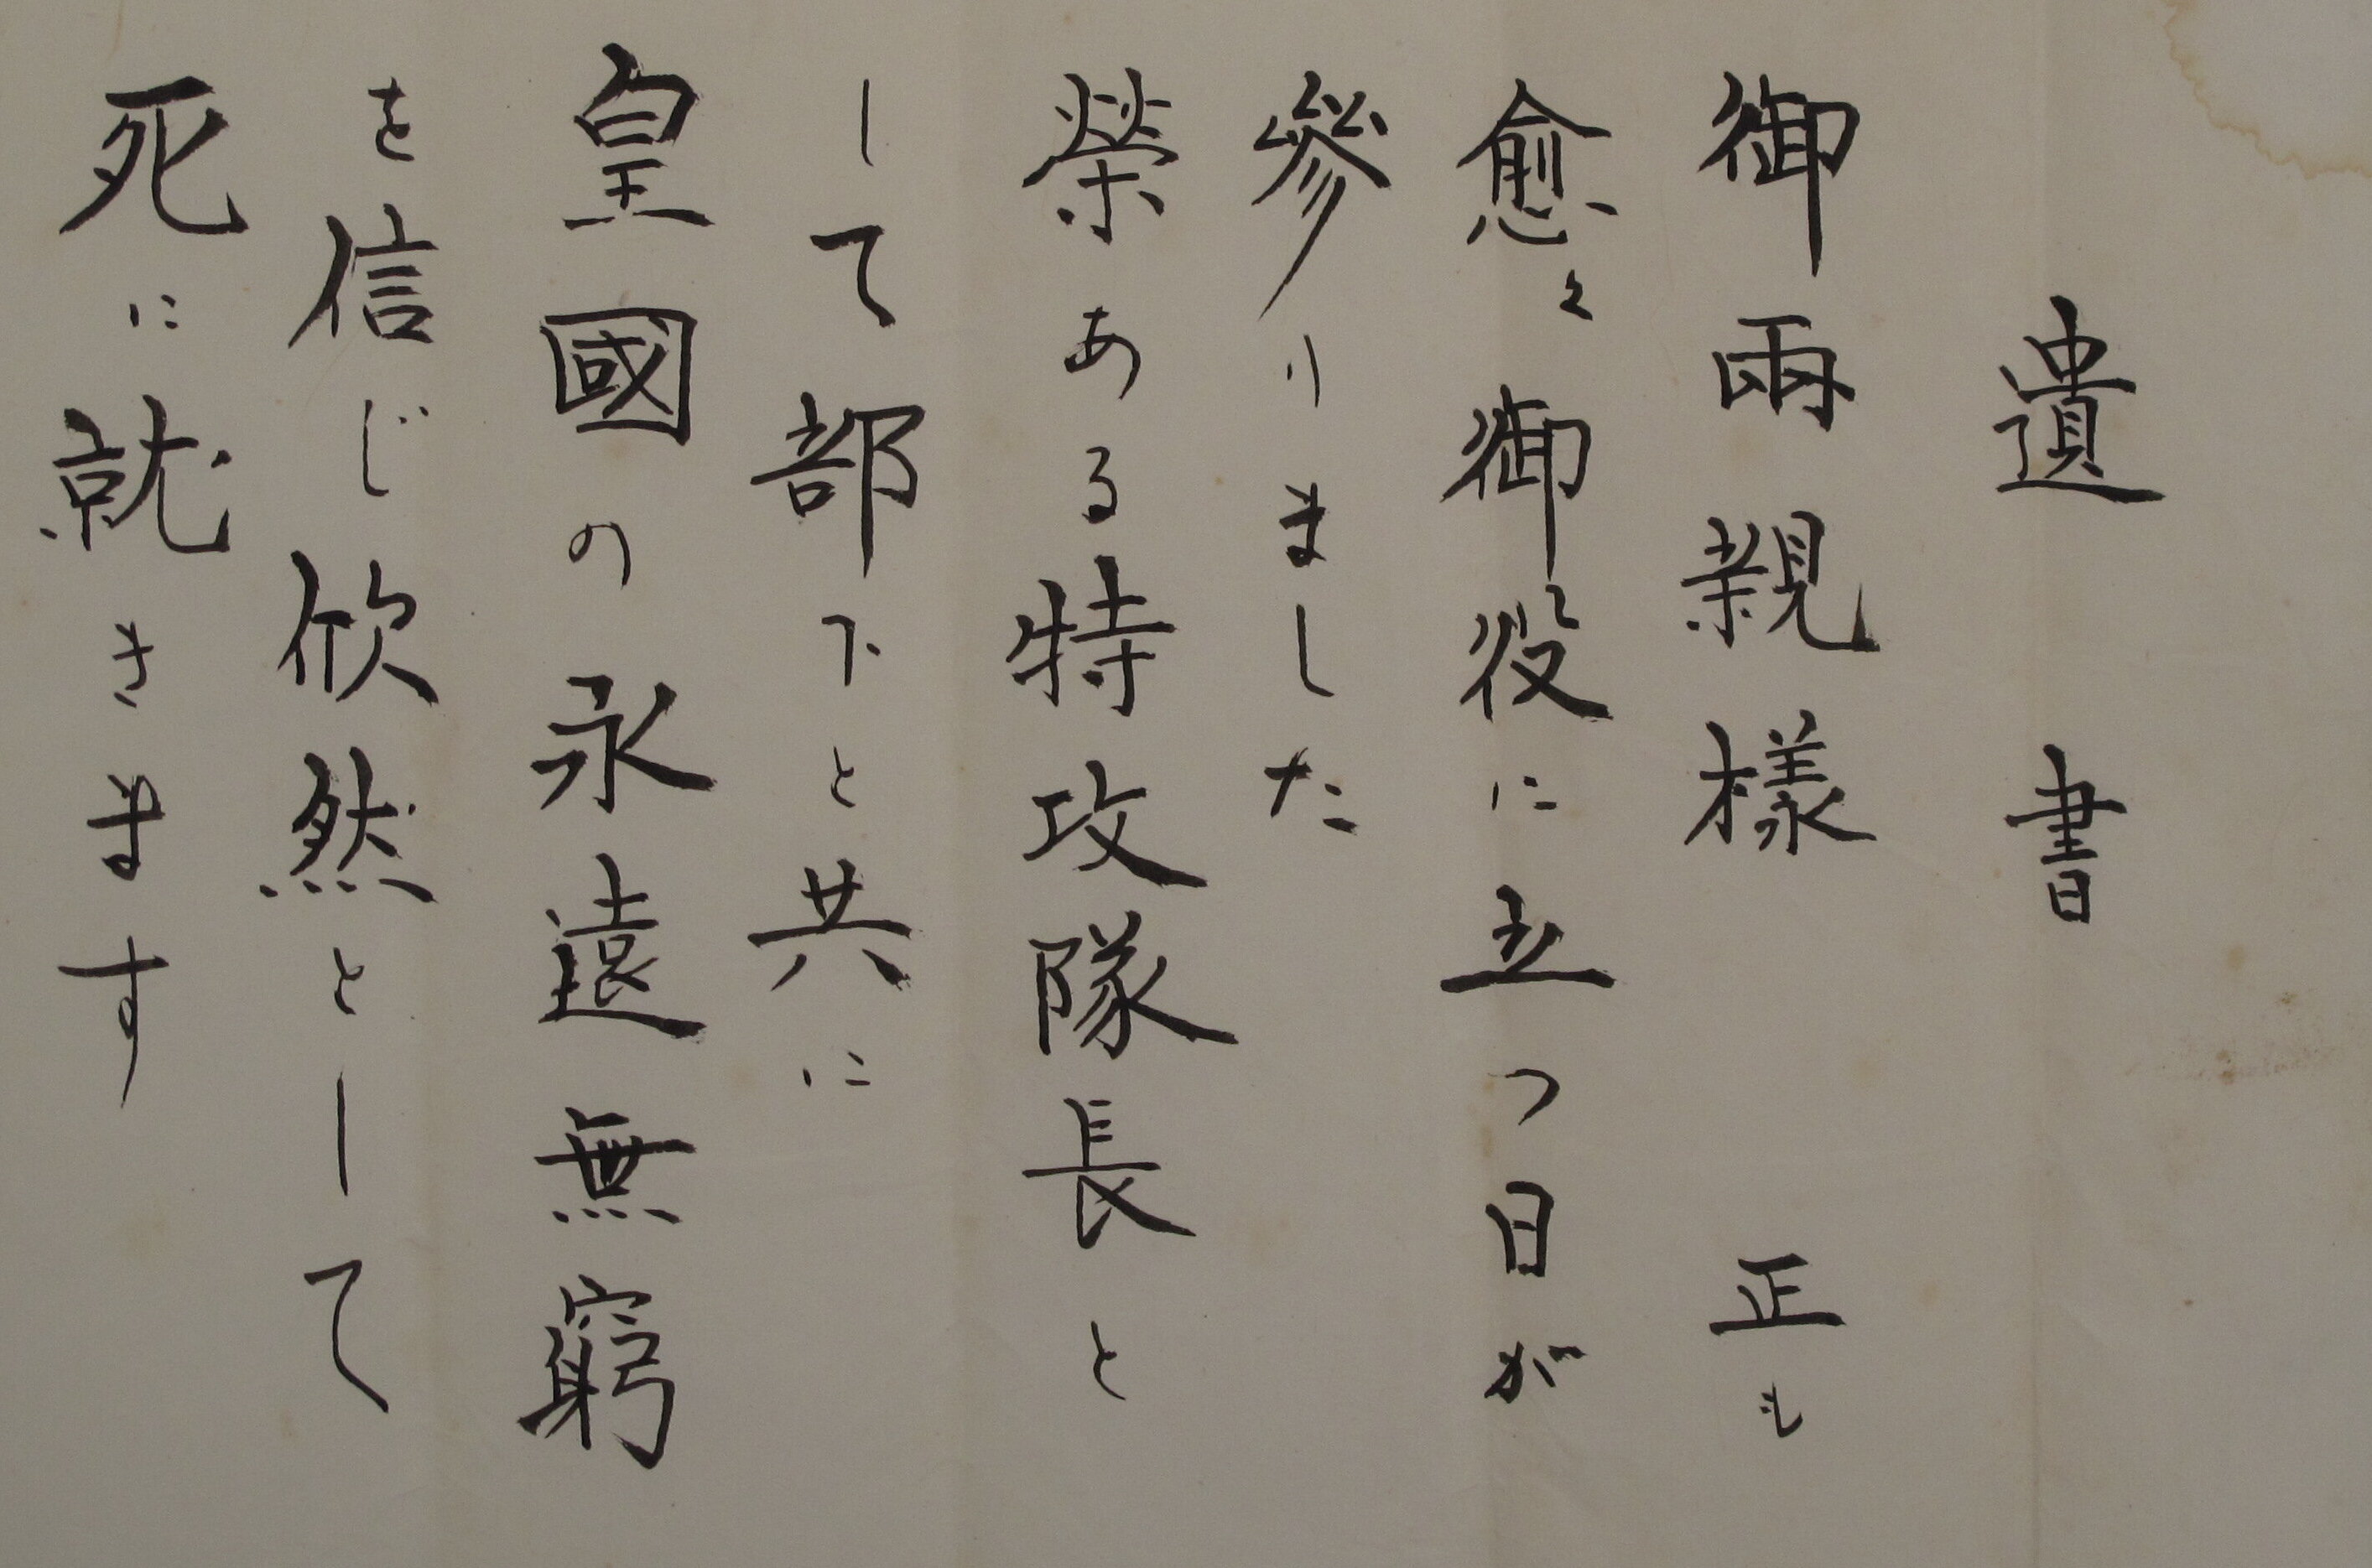 遺書
御両親様 正も
愈々御役に立つ日が
參りました
榮ある特攻隊長と
して部下と共に
皇國の永遠無窮
を信じ欣然として
死に就きます